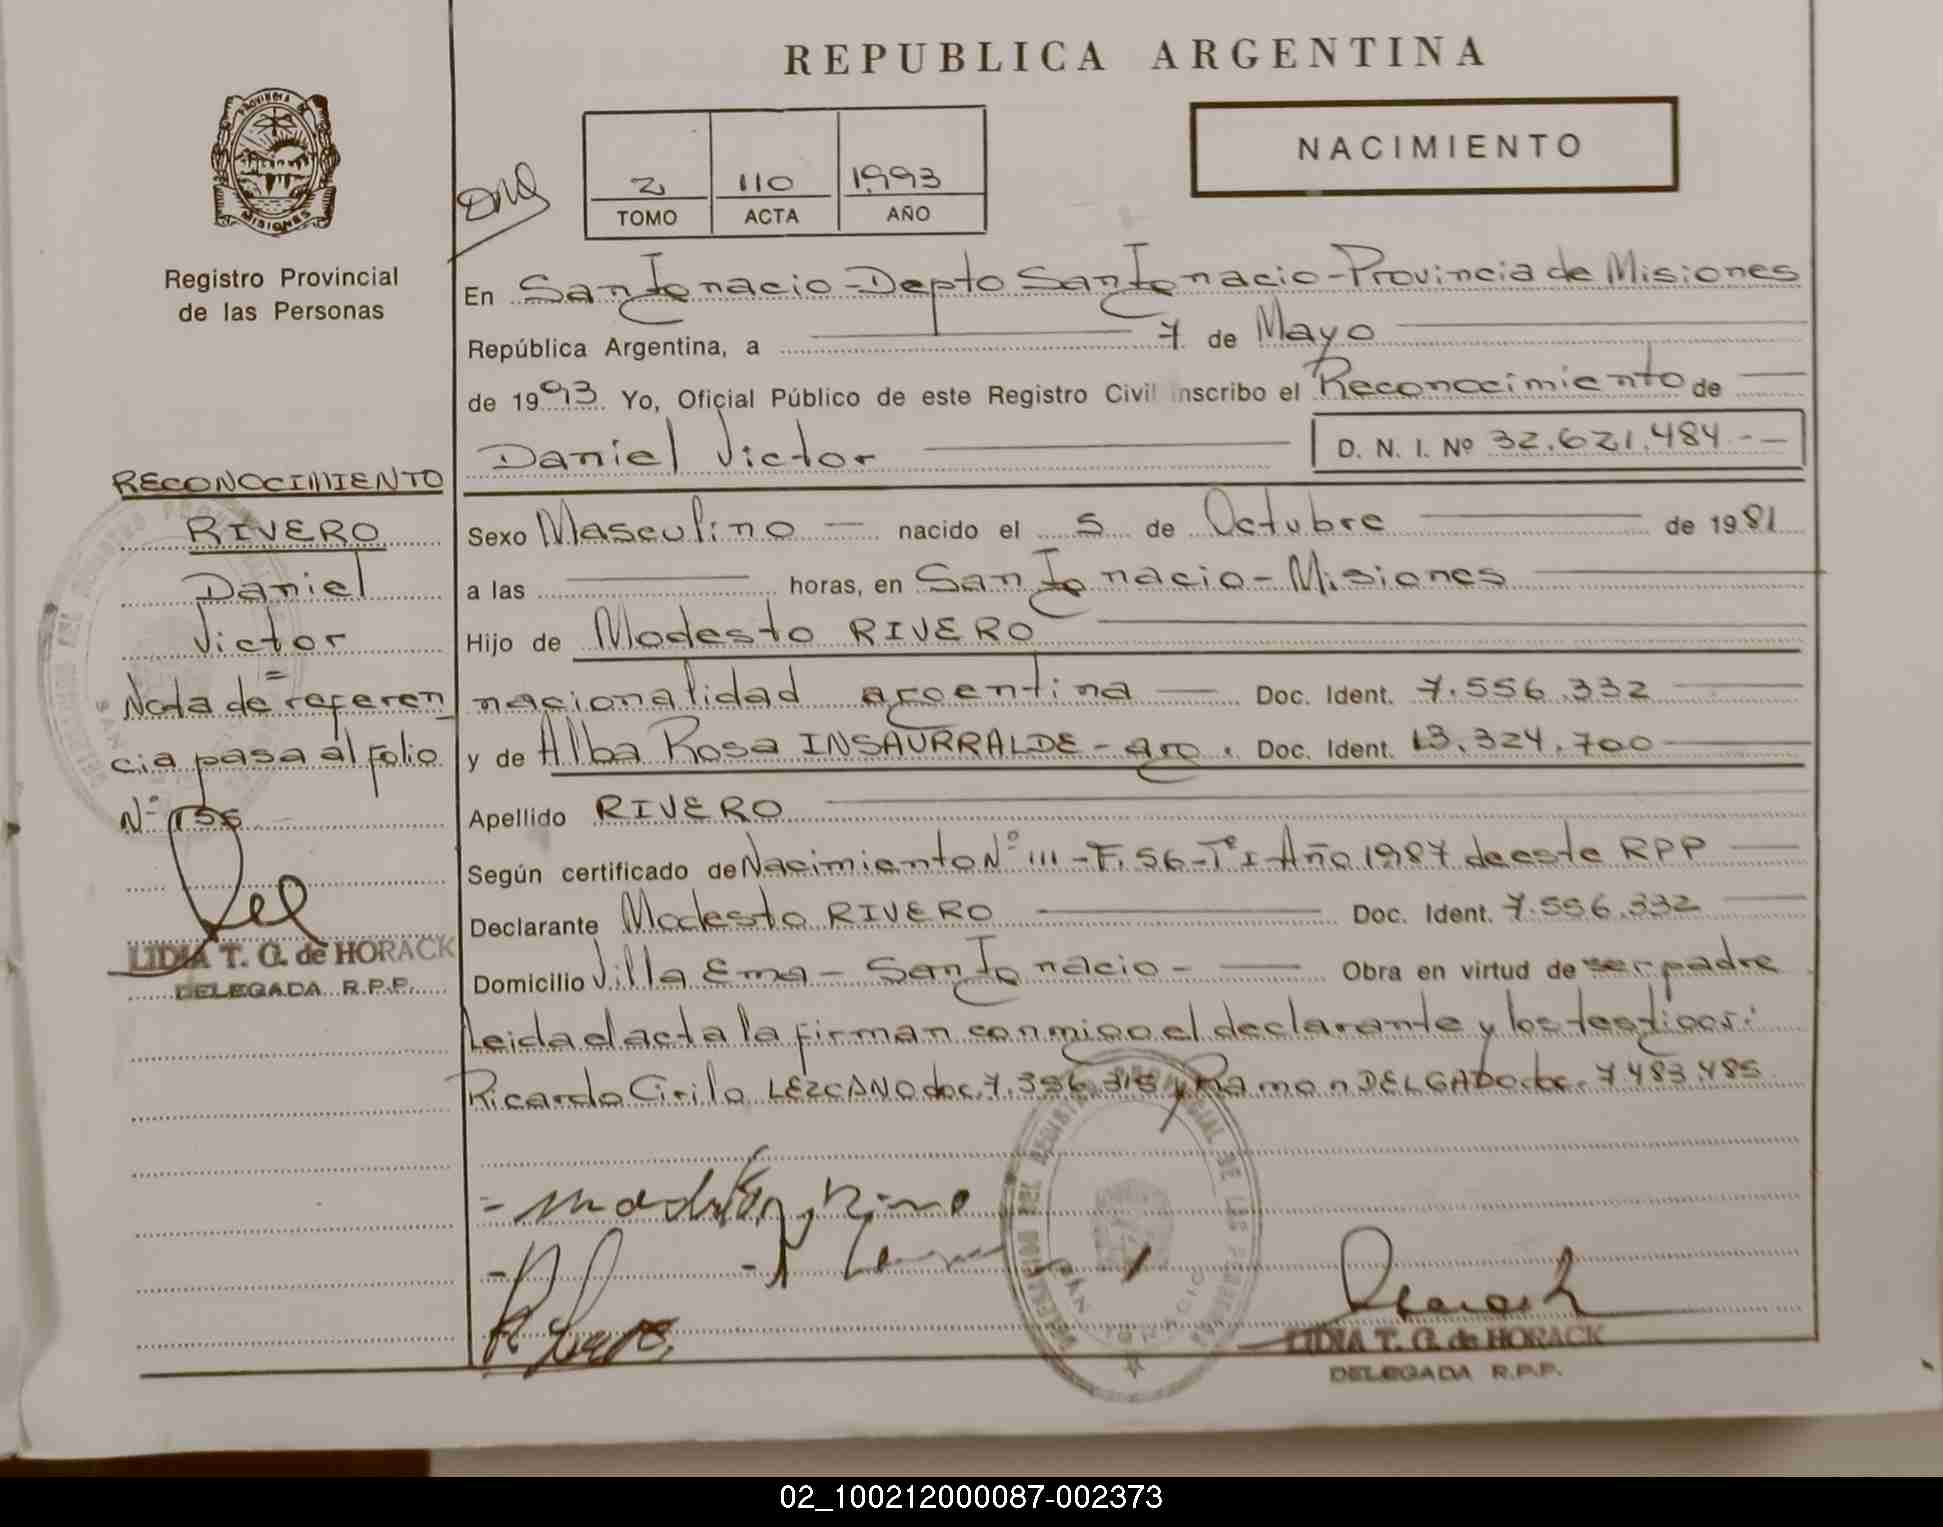 REPUBLICA ARGENTINA
NACIMIENTO
PROVINCIA DE MISIONES
Registro Provincial
de las Personas
2 110 1993
TOMO ACTA AÑO
En San Ignacio - Depto San Ignacio - Provincia de Misiones
República Argentina, a 7 de Mayo
de 1993 Yo, Oficial Público de este Registro Civil inscribo el Reconocimiento de
Daniel Victor D. N. I. Nº 32.621.484 --
RECONOCIMIENTO
RIVERO
Daniel
Victor
=
Nota de referen
cia pasa al folio
Nº 155
LIDIA T. G. de HORACK
DELEGADA R.P.P.
Sexo Masculino — nacido el 5 de Octubre de 1981
a las horas, en San Ignacio - Misiones
Hijo de Modesto RIVERO
nacionalidad argentina — Doc. Ident. 7.556.332
y de Alba Rosa INSAURRALDE - arg. Doc. Ident. 13.324.700
Apellido RIVERO
Según certificado de Nacimiento Nº 111 - F. 56 - Tº I - Año 1987 de este RPP
Declarante Modesto RIVERO Doc. Ident. 7.556.332
Domicilio Villa Ema - San Ignacio - Obra en virtud de ser padre
Leida el acta la firman conmigo el declarante y los testigos:
Ricardo Cirilo LEZCANO doc. 7.356.315 y Ramon DELGADO doc. 7483.485
DELEGACION DEL REGISTRO PROVINCIAL DE LAS PERSONAS
SAN IGNACIO
LIDIA T. G. de HORACK
DELEGADA R.P.P.
02_100212000087-002373